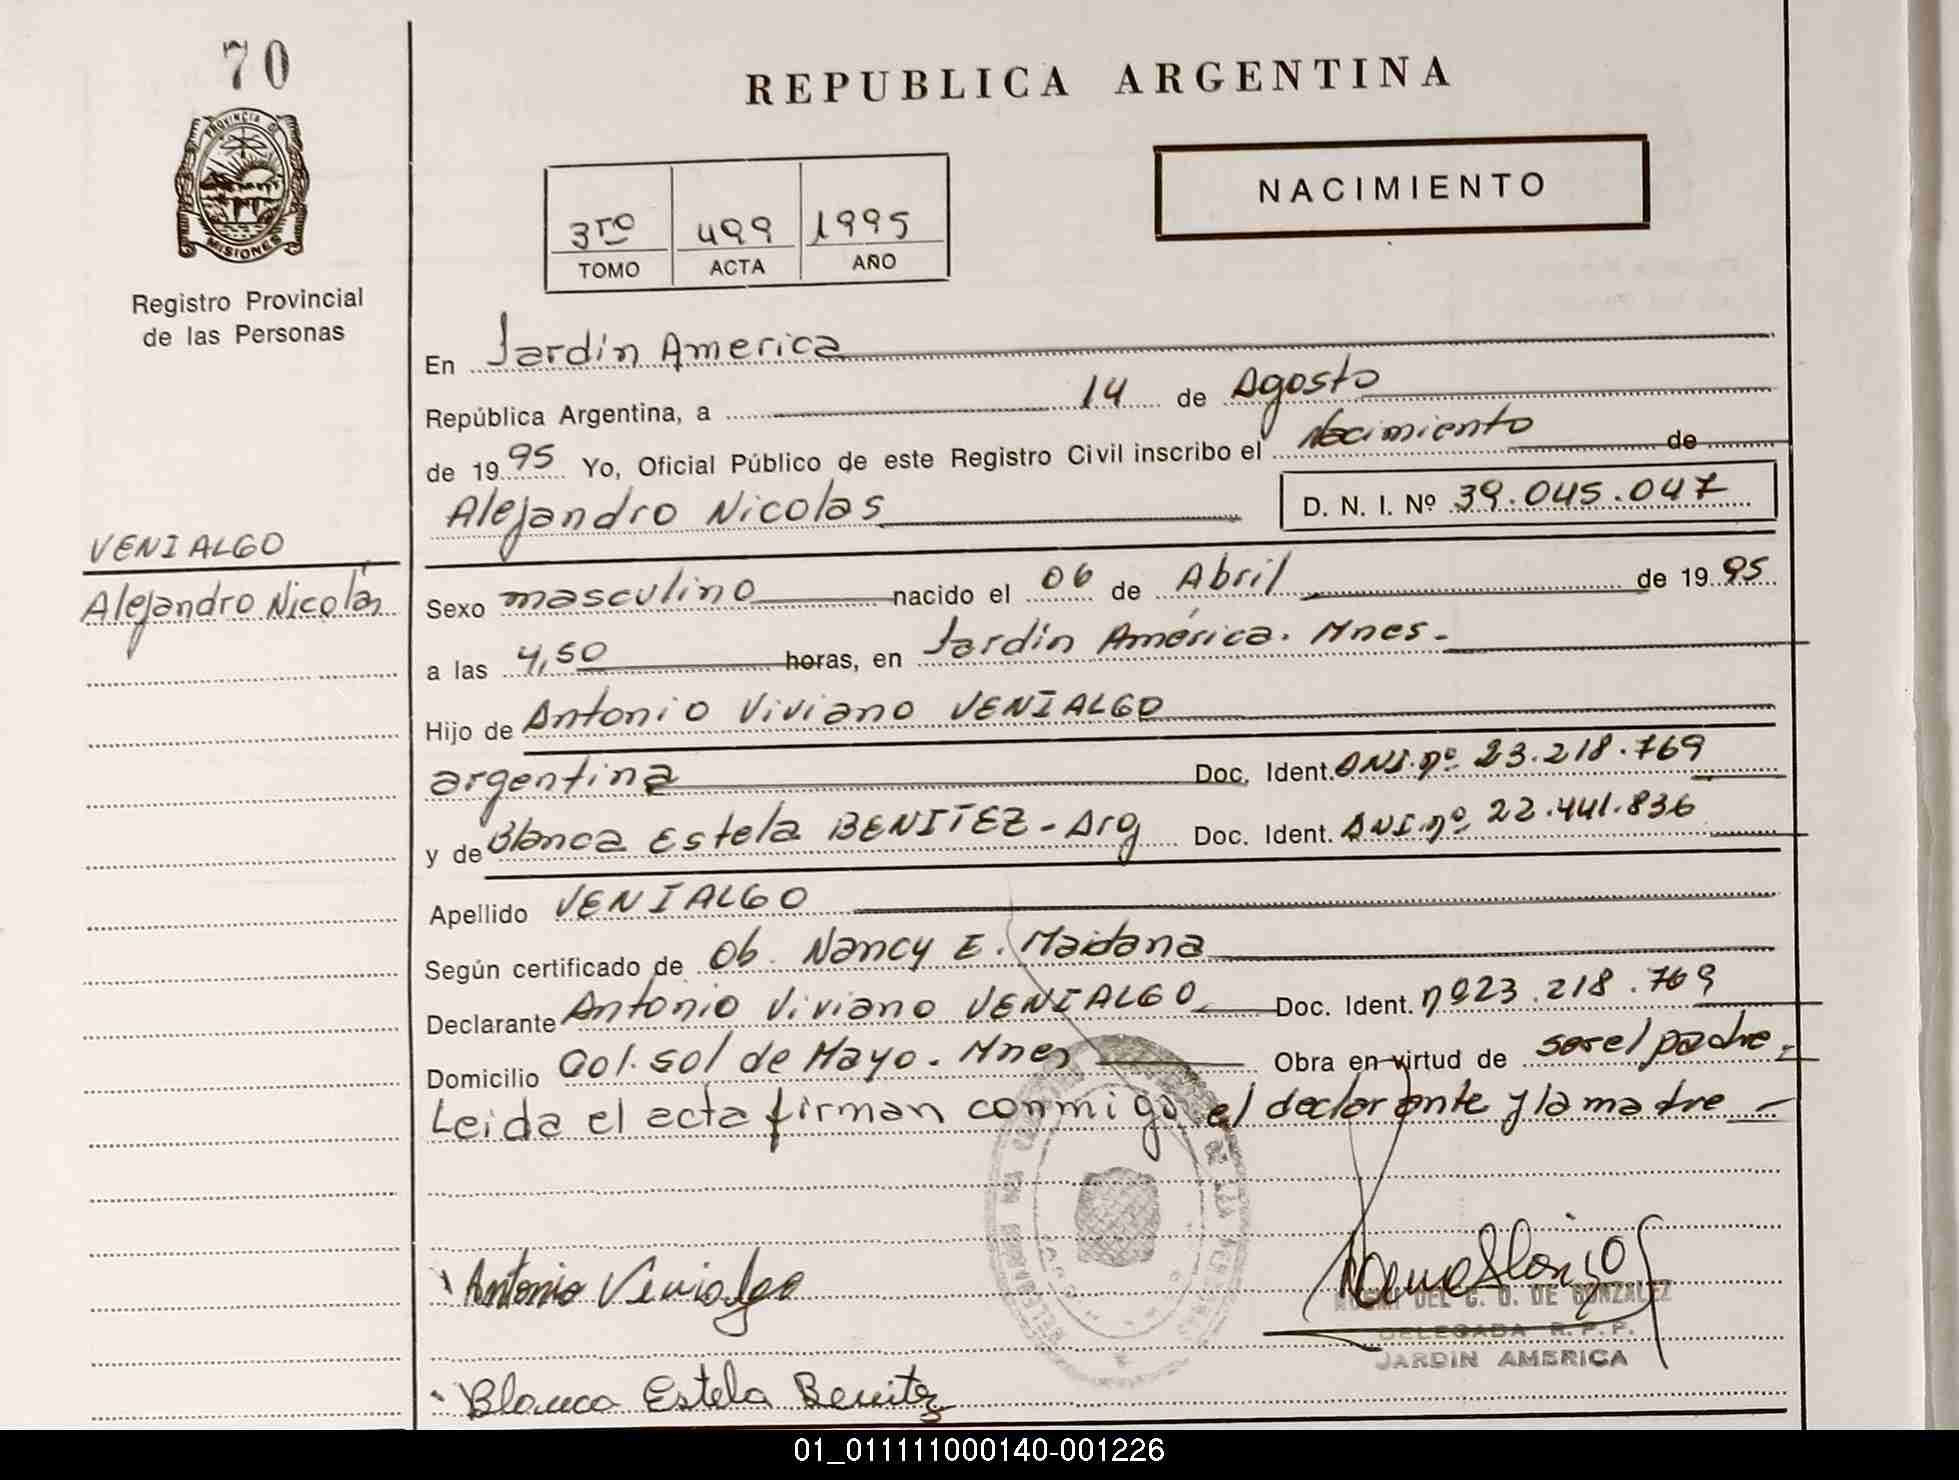 70
PROVINCIA DE
MISIONES
Registro Provincial
de las Personas
VENIALGO
Alejandro Nicolás
REPUBLICA ARGENTINA
NACIMIENTO
3ro 499 1995
TOMO ACTA AÑO
En Jardín America
República Argentina, a 14 de Agosto
de 1995 Yo, Oficial Público de este Registro Civil inscribo el Nacimiento de
Alejandro Nicolas D. N. I. Nº 39.045.047
Sexo masculino nacido el 06 de Abril de 1995
a las 4,50 horas, en Jardín América. Mnes.
Hijo de Antonio Viviano VENIALGO
argentina Doc. Ident. DNI.nº 23.218.769
y de Blanca Estela BENITEZ - Arg Doc. Ident. DNI.nº 22.441.836
Apellido VENIALGO
Según certificado de Ob. Nancy E. Maidana
Declarante Antonio Viviano VENIALGO Doc. Ident. nº23.218.769
Domicilio Col. Sol de Mayo. Mnes Obra en virtud de ser el padre.
Leida el acta firman conmigo el declarante y la madre
Antonio Venialgo
DEL C. D. DE GONZALEZ
DELEGADA R.P.P.
JARDIN AMERICA
Blanca Estela Benitez
01_011111000140-001226